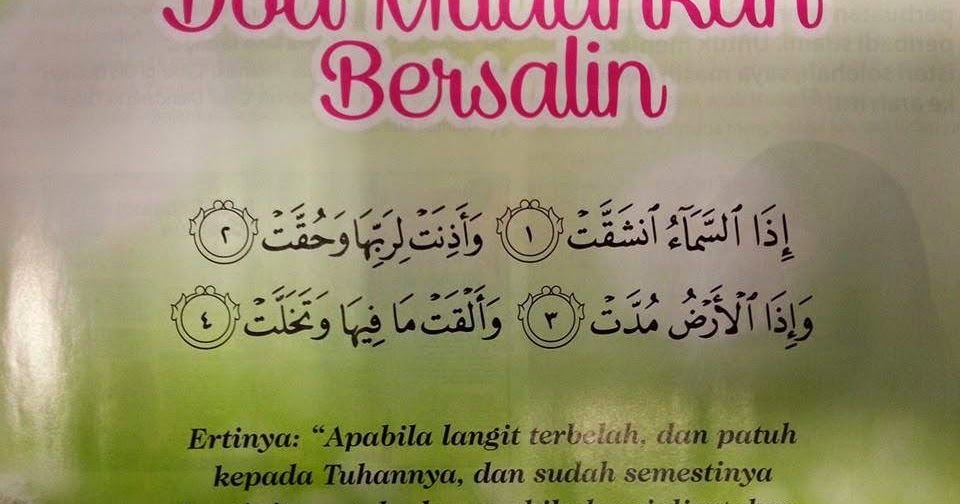 Doa Mudahkan
Bersalin
إِذَا ٱلسَّمَآءُ ٱنشَقَّتۡ ١ وَأَذِنَتۡ لِرَبِّهَا وَحُقَّتۡ ٢
وَإِذَا ٱلۡأَرۡضُ مُدَّتۡ ٣ وَأَلۡقَتۡ مَا فِيهَا وَتَخَلَّتۡ ٤
Ertinya: “Apabila langit terbelah, dan patuh
kepada Tuhannya, dan sudah semestinya